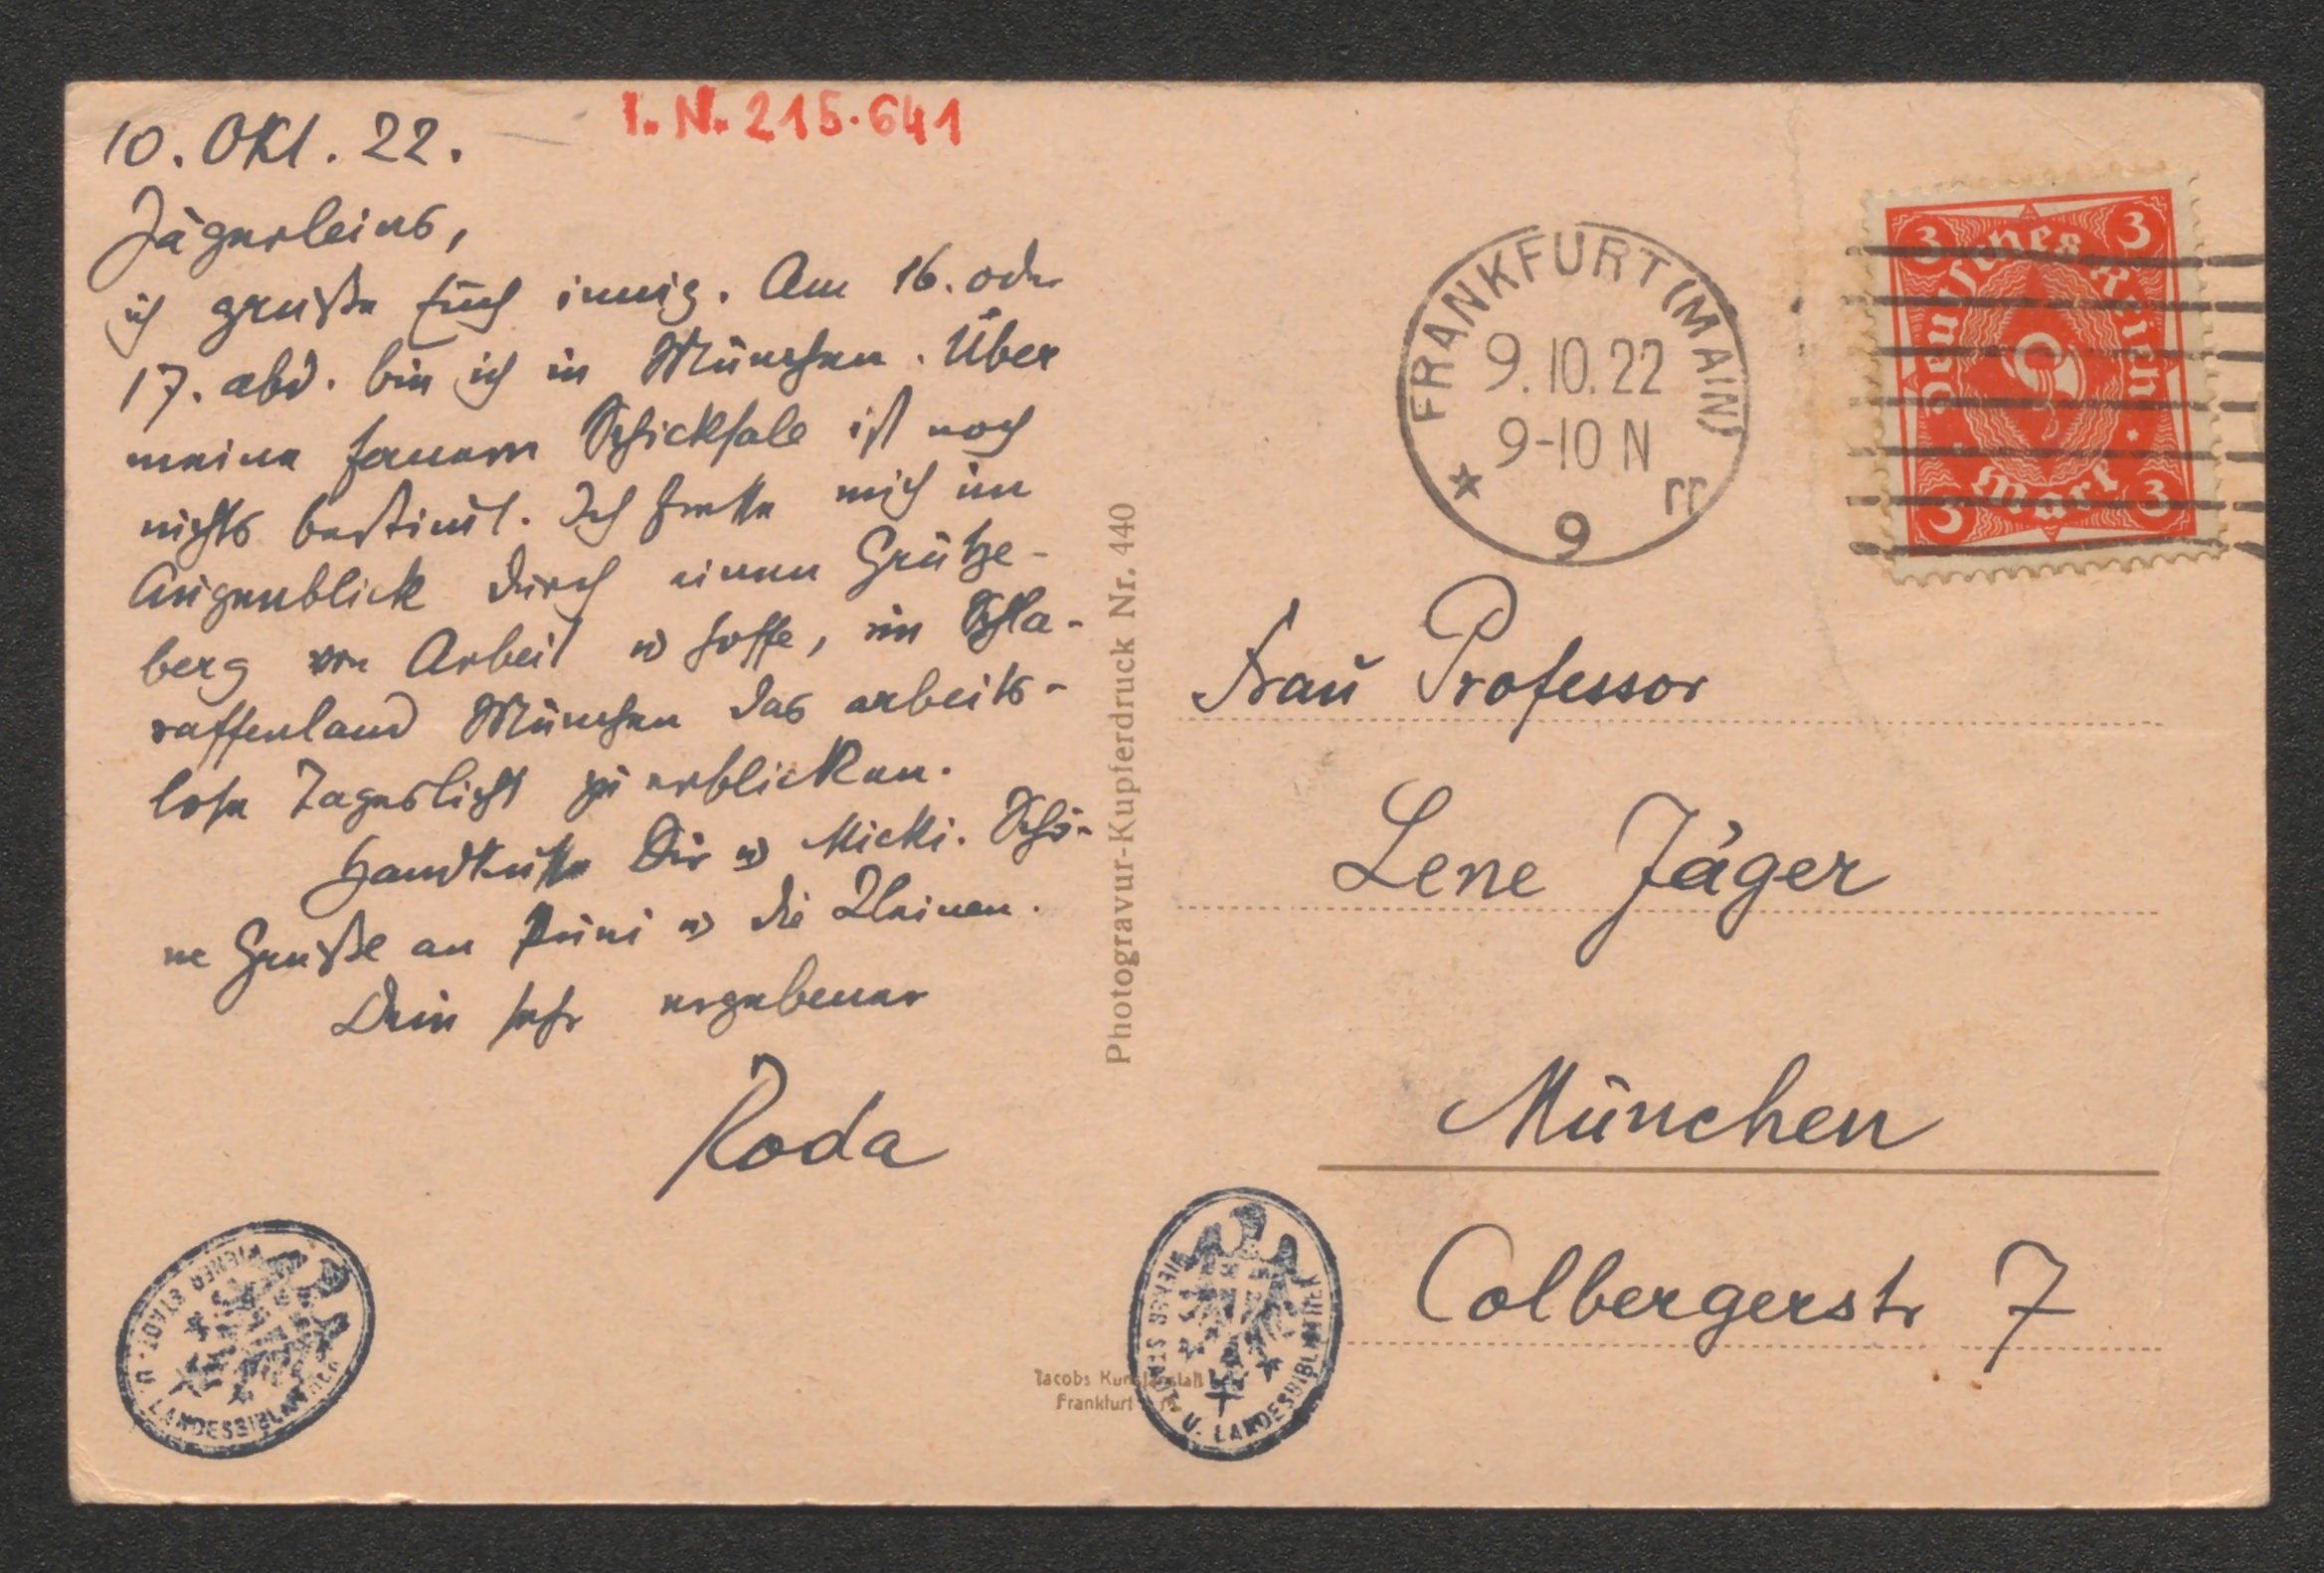 I. N. 215.641
10. Okt. 22.
Jägerleins,
ich grüße Euch innig. Am 16. oder
17. abd. bin ich in München. Über
meine ferneren Schicksale ist noch
nichts bestimt. Ich fresse mich im
Augenblick durch einen Grütze-
berg von Arbeit u hoffe, im Schla-
raffenland München das arbeits-
lose Tageslicht zu erblicken.
Handküsse Dir u Micki. Schö-
ne Grüße an u die Kleinen.
Dein sehr ergebener
Roda
Photogravur-Kupferdruck Nr. 440
Jacobs Kunstanstalt
Frankfurt
FRANKFURT (MAIN)
9.10.22
9-10 N
* 9
3 3
Deutsches Reich
Mark
3 3
Frau Professor
Lene Jäger
München
Colbergerstr 7
WIENER STADT- U. LANDESBIBLIOTHEK
WIENER STADT- U. LANDESBIBLIOTHEK